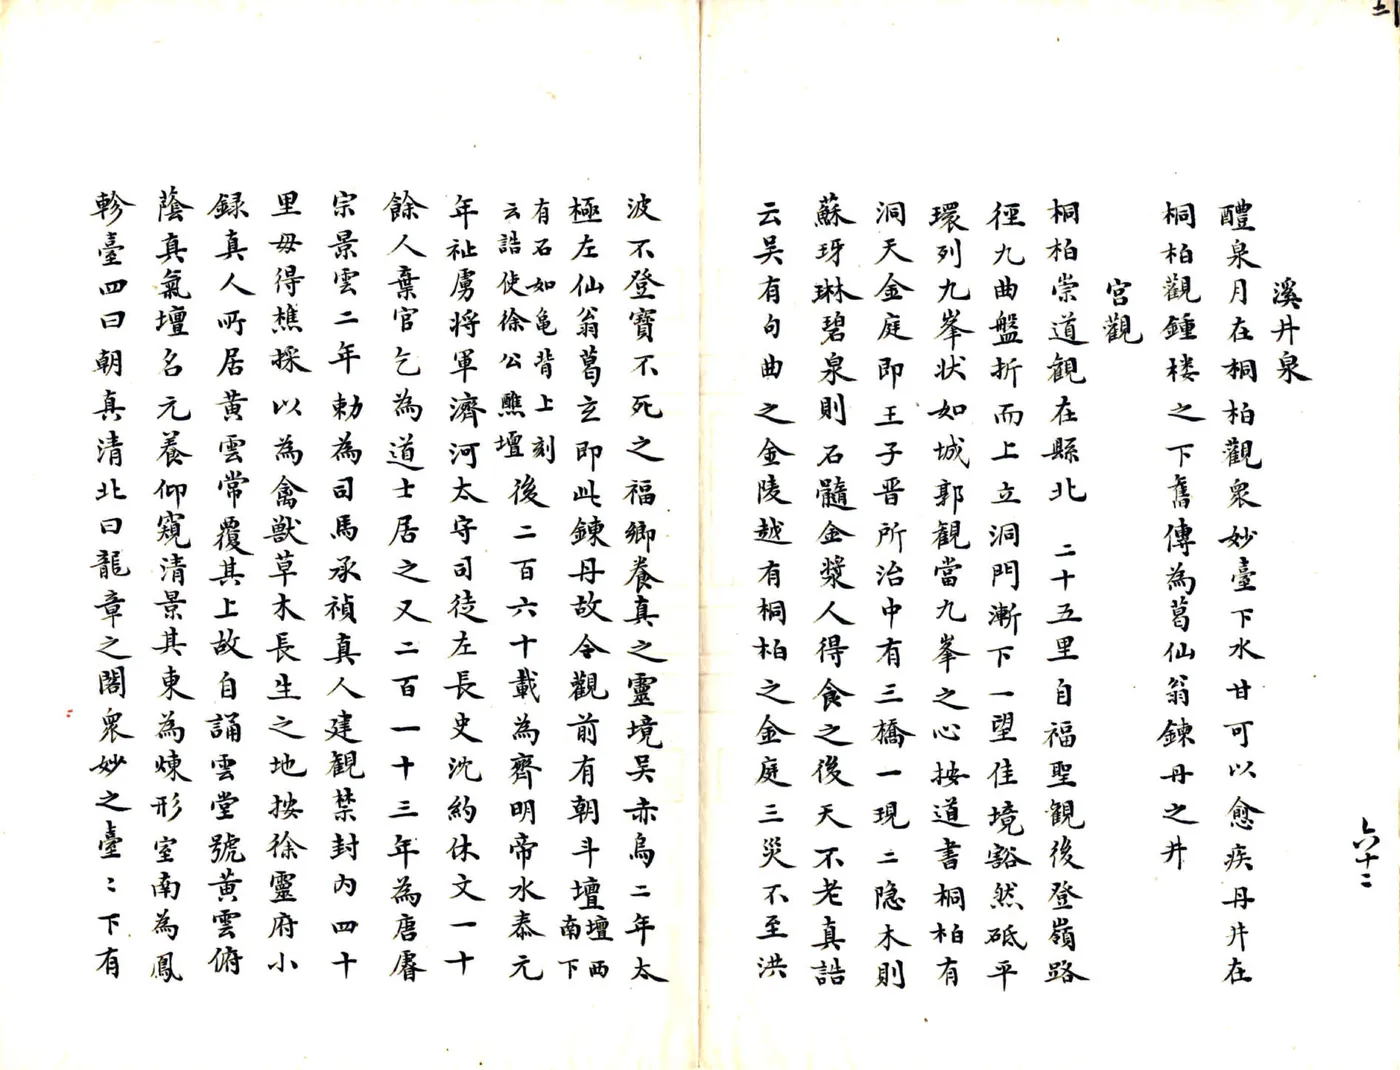 溪井泉
醴泉月在桐柏觀衆妙臺下水甘可以愈疾丹井在
桐柏觀鍾楼之下舊傳為葛仙翁鍊丹之井
宮觀
桐柏崇道觀在縣北 二十五里自福聖觀後登嶺路
徑九曲盤折而上立洞門漸下一望佳境豁然砥平
環列九峯状如城郭觀當九峯之心按道書桐柏有
洞天金庭即王子晋所治中有三橋一現二隐木則
蘇玡琳碧泉則石髓金漿人得食之後天不老真誥
云吴有句曲之金陵越有桐柏之金庭三災不至洪
六十二
波不登寶不死之福鄉養真之靈境吴赤烏二年太
極左仙翁葛玄即此鍊丹故今觀前有朝斗壇壇西南下
有石如龜背上刻云誥使徐公醮壇後二百六十載為齊明帝水泰元
年祉虜将軍濟河太守司徒左長史沈約休文一十
餘人棄官乞為道士居之又二百一十三年為唐睿
宗景雲二年勅為司馬承禎真人建觀禁封内四十
里毋得樵採以為禽獸草木長生之地按徐靈府小
録真人所居黄雲常覆其上故自誦雲堂號黄雲俯
蔭真氣壇名元養仰窺清景其東為煉形室南為鳳
軫臺四曰朝真清北曰龍章之閣衆妙之臺〻下有